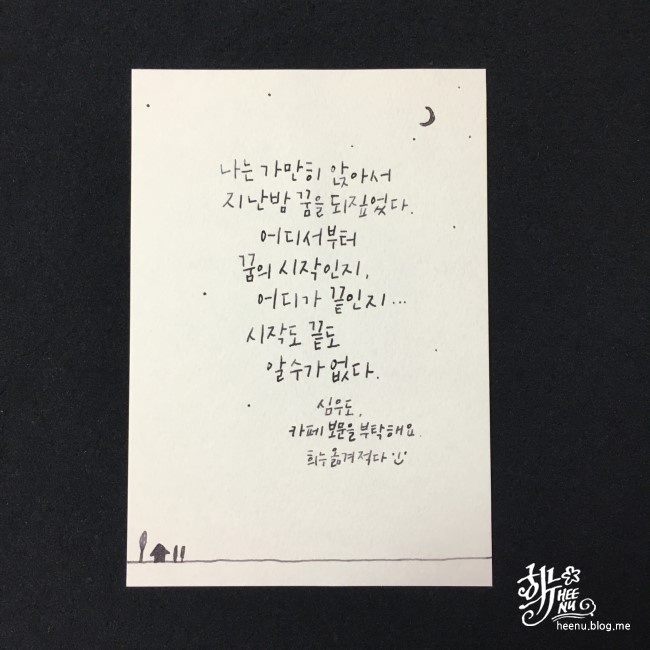 나는 가만히 앉아서
지난밤 꿈을 되짚었다.
어디서부터
꿈의 시작인지,
어디가 끝인지...
시작도 끝도
알 수가 없다.
심우도,
카페 보문을 부탁해요.
희누 옮겨적다
희누
HEE
NU
heenu.blog.me